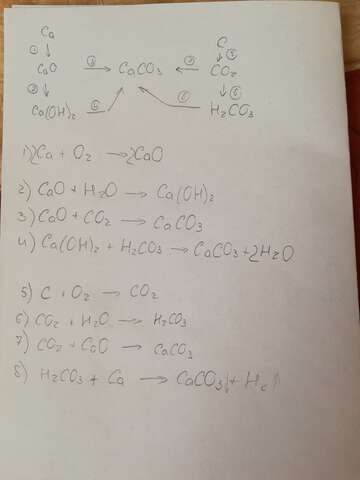 Ca C
① ↓ ↓ ⑤
CaO ③ → CaCO3 ← ⑦ CO2
② ↓ ↓ ⑥
Ca(OH)2 ④ ⑧ H2CO3
1) 2Ca + O2 → 2CaO
2) CaO + H2O → Ca(OH)2
3) CaO + CO2 → CaCO3
4) Ca(OH)2 + H2CO3 → CaCO3 + 2H2O
5) C + O2 → CO2
6) CO2 + H2O → H2CO3
7) CO2 + CaO → CaCO3
8) H2CO3 + Ca → CaCO3↓ + H2↑